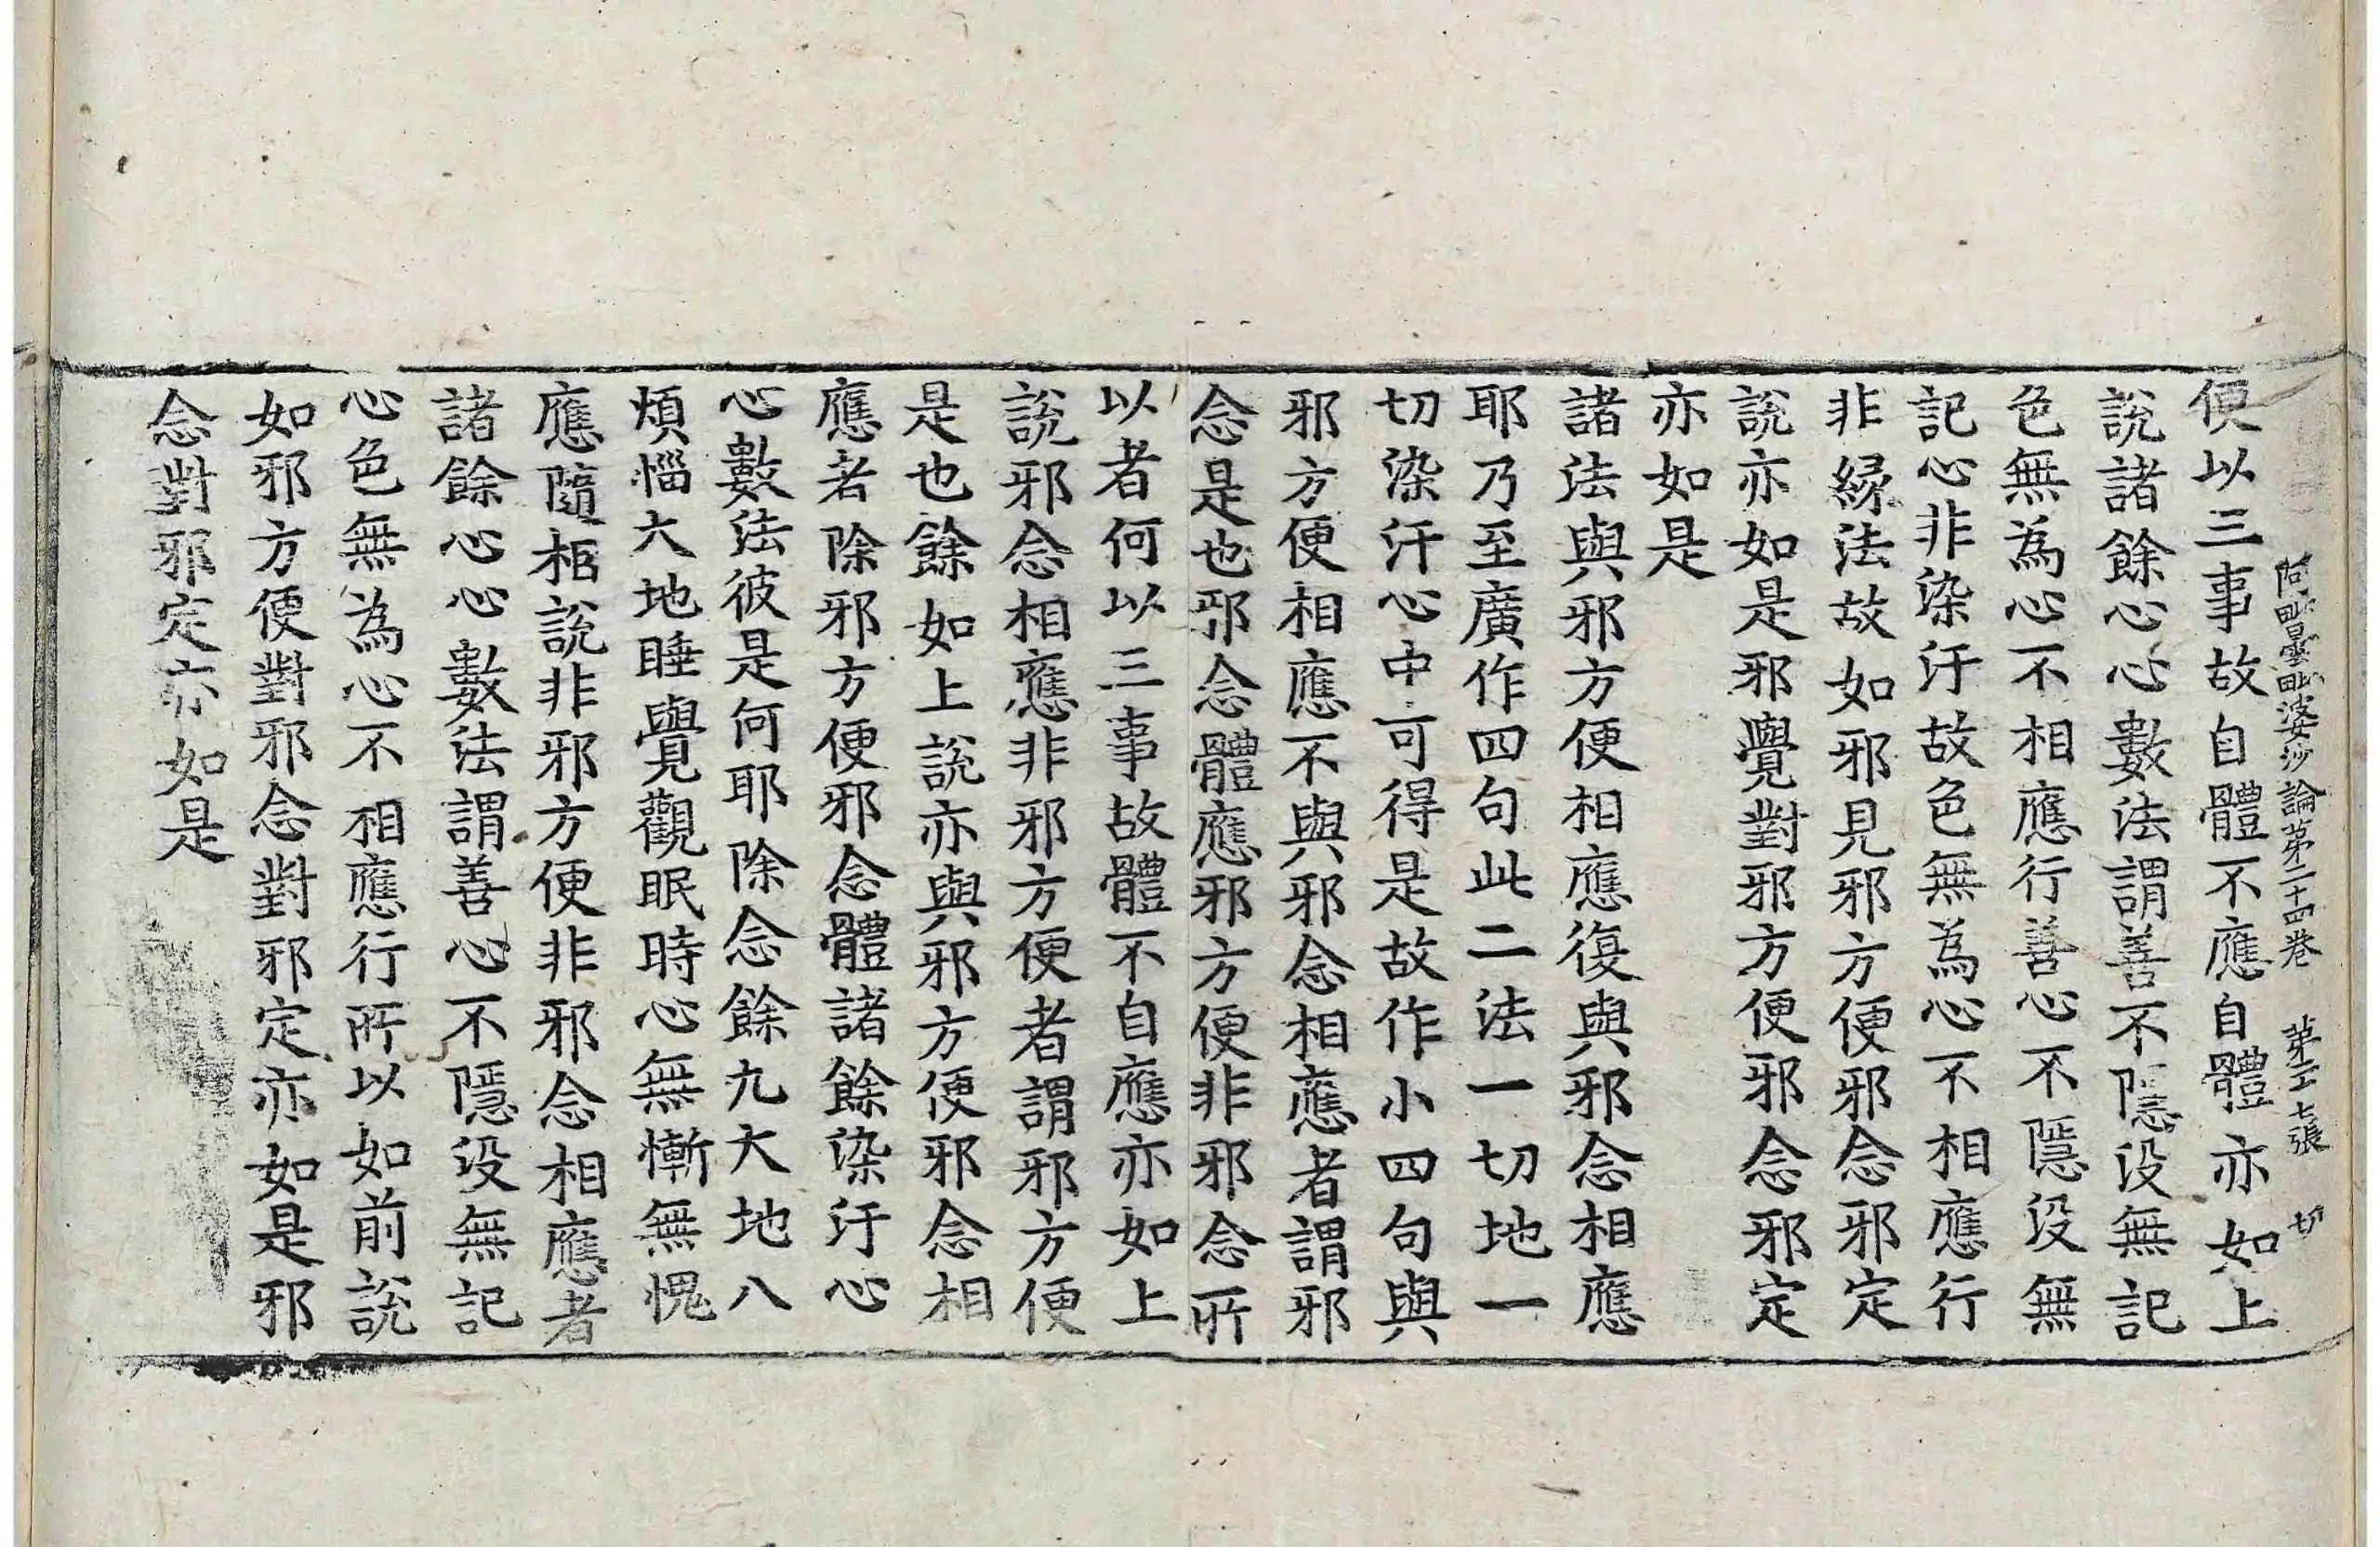 阿毗曇毗婆沙論第二十四卷　第二十七張　切
便以三事故自體不應自體亦如上
說諸餘心心數法謂善不隱没無記
色無為心不相應行善心不隱没無
記心非染汙故色無為心不相應行
非緣法故如邪見邪方便邪念邪定
說亦如是邪覺對邪方便邪念邪定
亦如是
諸法與邪方便相應復與邪念相應
耶乃至廣作四句此二法一切地一
切染汙心中可得是故作小四句與
邪方便相應不與邪念相應者謂邪
念是也邪念體應邪方便非邪念所
以者何以三事故體不自應亦如上
說邪念相應非邪方便者謂邪方便
是也餘如上說亦與邪方便邪念相
應者除邪方便邪念體諸餘染汙心
心數法彼是何耶除念餘九大地八
煩惱大地睡覺觀眠時心無慚無愧
應隨相說非邪方便非邪念相應者
諸餘心心數法謂善心不隱没無記
心色無為心不相應行所以如前說
如邪方便對邪念對邪定亦如是邪
念對邪定亦如是